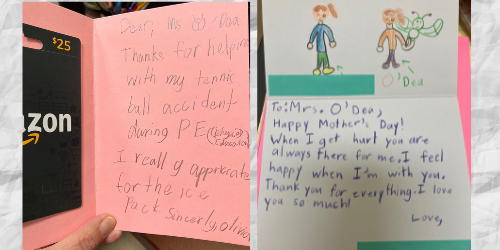 $25
zon
Dear, Ms O'Dea
Thanks for helping
with my tennis
ball accident
during PE (Physical Education)
I really appreciate
for the ice
Pack. Sincerely, Olivia
O'Dea
To: Mrs. O'Dea,
Happy Mother's Day!
When I get hurt you are
always there for me. I feel
happy when I'm with you.
Thank you for everything. I love
you so much!
Love,